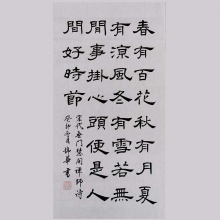 春有百花秋有月夏
有涼風冬有雪若無
閒事掛心頭便是人
間好時節
宋代无門慧開禪師詩
書